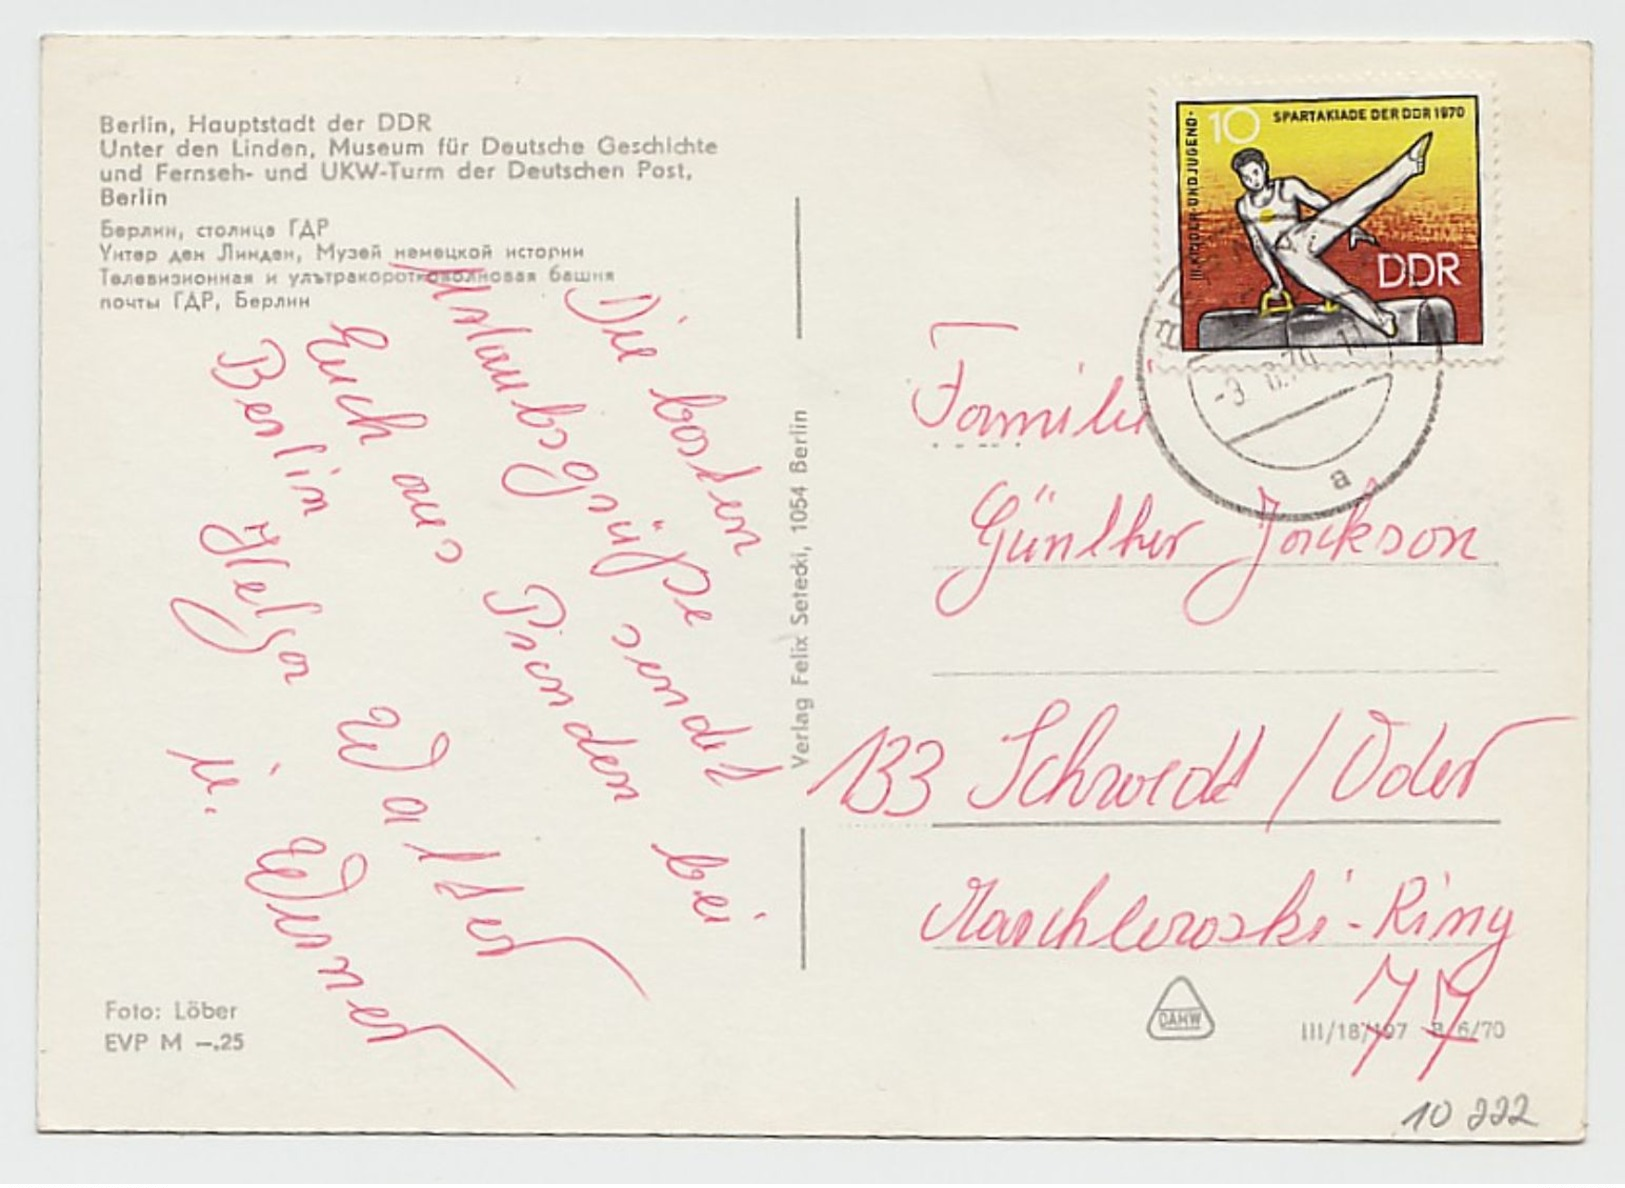 Berlin, Hauptstadt der DDR
Unter den Linden, Museum für Deutsche Geschichte
und Fernseh- und UKW-Turm der Deutschen Post,
Berlin
Берлин, столица ГДР
Унтер ден Линден, Музей немецкой истории
Телевизионная и ультракоротковолновая башня
почты ГДР, Берлин
Die besten
Urlaubsgrüße sendet
Euch aus Prenden bei
Berlin Helga Walter
u. Werner
Foto: Löber
EVP M –.25
Verlag Felix Setecki, 1054 Berlin
10
III. KINDER-UND JUGEND-
SPARTAKIADE DER DDR 1970
DDR
-3.8.70
a
Familie
Günther Jackson
133 Schwedt/Oder
Marchlewski-Ring
77
DAHW
III/18/197 B 6/70
10 222